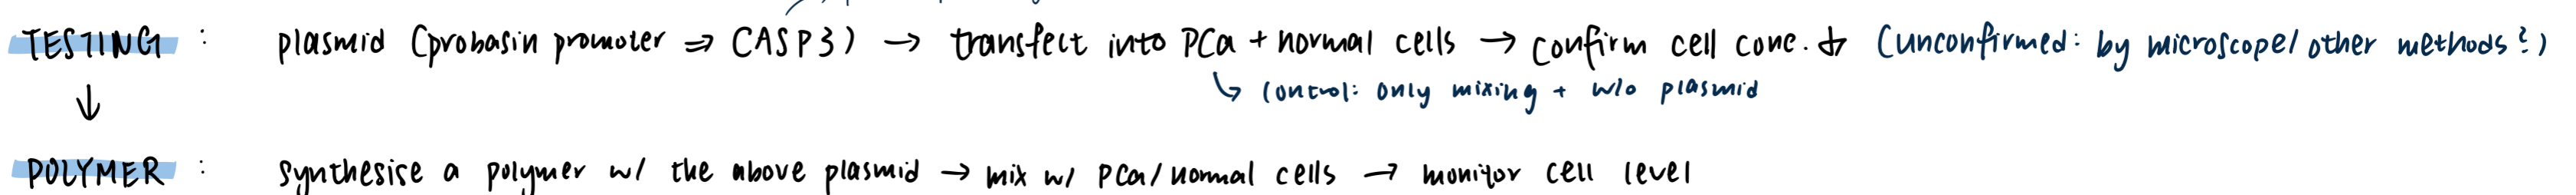 TESTING : plasmid (probasin promoter ⇒ CASP3) → transfect into PCa + normal cells → confirm cell conc. ↓ (unconfirmed: by microscope/other methods?)
↓ ↳ control: only mixing + w/o plasmid
POLYMER : synthesise a polymer w/ the above plasmid → mix w/ PCa/normal cells → monitor cell level